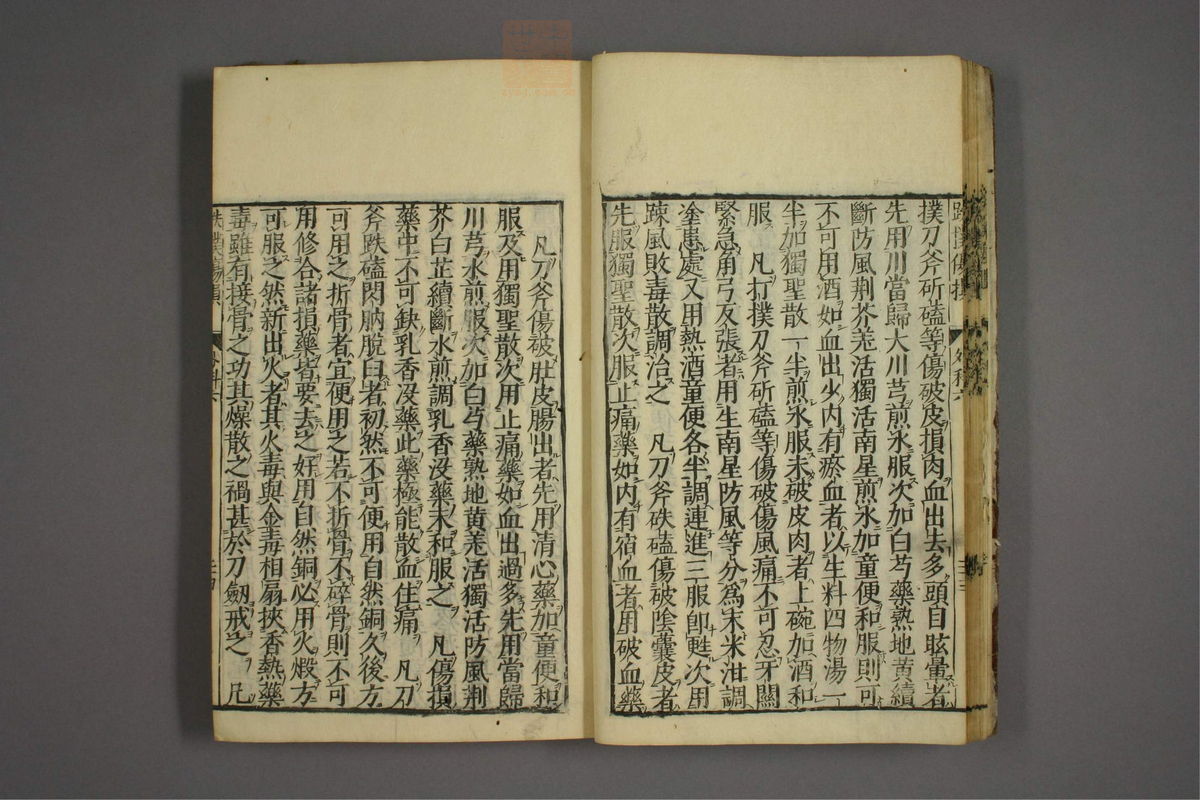 撲刀斧斫磕等傷破皮損肉血出去多頭目眩暈者
先用川當歸大川芎煎水服次加白芍藥熟地黄續
斷防風荆芥羌活獨活南星煎水加童便和服則可
不可用酒如血出少内有瘀血者以生料四物湯一
半加獨聖散一半煎水服未破皮肉者上碗加酒和
服　凡打撲刀斧斫磕等傷破傷風痛不可忍牙關
緊急角弓反張者用生南星防風等分爲末米泔調
塗患處又用熱酒童便各半調連進三服即甦次用
疎風敗毒散調治之　凡刀斧砍磕傷破陰囊皮者
先服獨聖散次服止痛藥如内有宿血者用破血藥
凡刀斧傷破肚皮腸出者先用清心藥加童便和
服及用獨聖散次用止痛藥如血出過多先用當歸
川芎水煎服次加白芍藥熟地黄羌活獨活防風荆
芥白芷續斷水煎調乳香没藥末和服之　凡傷損
藥中不可缺乳香没藥此藥極能散血住痛　凡刀
斧跌磕閃肭脫臼者初然不可便用自然銅久後方
可用之折骨者宜便用之若不折骨不碎骨則不可
用修合諸損藥皆要去之好用自然銅必用火煅方
可服之然新出火者其火毒與金毒相扇挾香熱藥
毒雖有接骨之功其燥散之禍甚於刀劔戒之　凡